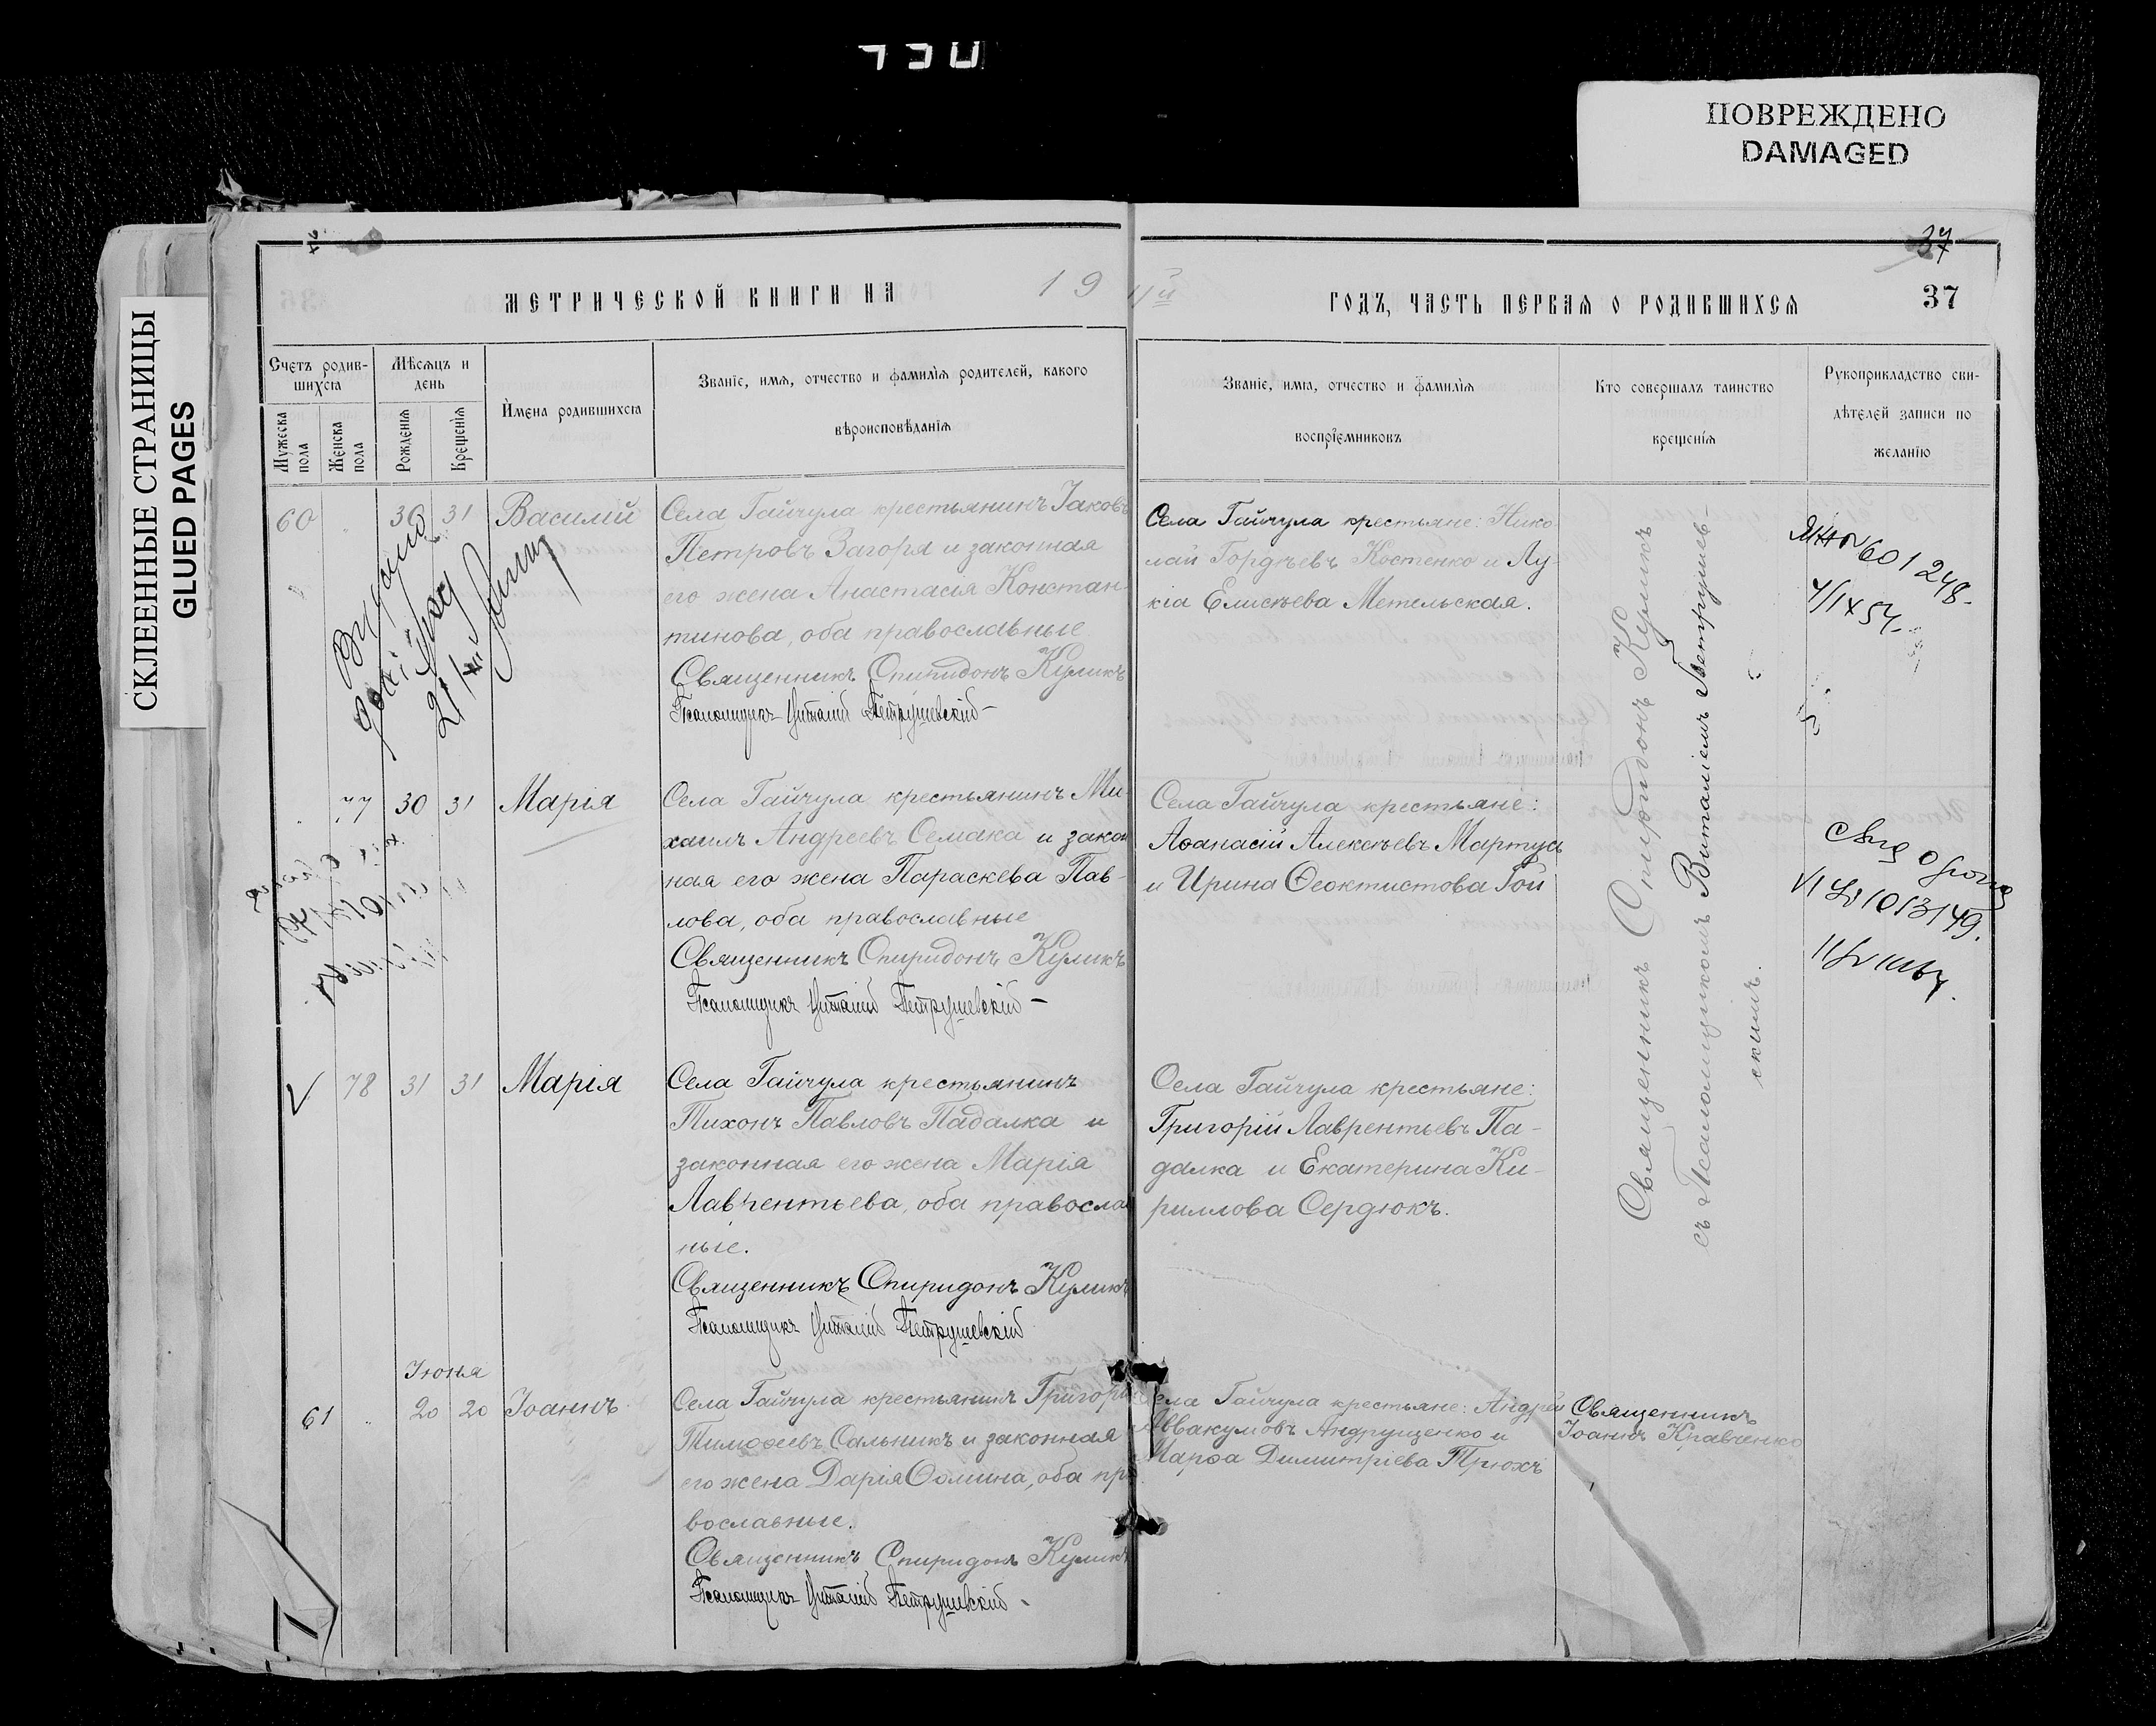 ПОВРЕЖДЕНО
DAMAGED
СКЛЕЕННЫЕ СТРАНИЦЫ
GLUED PAGES
37
МЕТРИЧЕСКОЙ КНИГИ НА 19 11й ГОДЪ, ЧАСТЬ ПЕРВАЯ О РОДИВШИХСЯ 37
Счетъ родив-
шихся
Мужеска пола
Женска пола
Мѣсяцъ и
день
Рожденія
Крещенія
Имена родившихся
Званіе, имя, отчество и фамилія родителей, какого
вѣроисповѣданія
Званіе, имя, отчество и фамилія
воспріемниковъ
Кто совершалъ таинство
крещенія
Рукоприкладство сви-
дѣтелей записи по
желанію
60 30 31 Василий
Села Гайчула крестьянинъ Іаковъ
Петровъ Загоря и законная
его жена Анастасія Констан-
тинова, оба православные
Священникъ Спиридонъ Куликъ
Псаломщикъ Виталій Петрушевскій
Села Гайчула крестьяне: Нико
лай Гордѣевъ Костенко и Лу-
кія Елисѣева Метельская.
Священникъ Спиридонъ Куликъ
съ Псаломщикомъ Виталіемъ Петрушев-
скимъ.
601248
77 30 31 Марія
Села Гайчула крестьянинъ Ми-
хаилъ Андреевъ Семака и закон
ная его жена Параскева Пав-
лова, оба православные
Священникъ Спиридонъ Куликъ
Псаломщикъ Виталій Петрушевскій
Села Гайчула крестьяне:
Аѳанасій Алексѣевъ Мартусь
и Ирина Ѳеоктистова Гой
78 31 31 Марія
Села Гайчула крестьянинъ
Тихонъ Павловъ Падалка и
законная его жена Марія
Лаврентьева, оба правосла
ные.
Священникъ Спиридонъ Куликъ
Псаломщикъ Виталій Петрушевскій
Села Гайчула крестьяне:
Григорій Лаврентьевъ Па-
далка и Екатерина Ки-
риллова Сердюкъ.
Іюня
61 20 20 Іоаннъ
Села Гайчула крестьянинъ Григорій
Тимоѳеевъ Сальникъ и законная
его жена Дарія Ѳомина, оба пра
вославные.
Священникъ Спиридонъ Куликъ
Псаломщикъ Виталій Петрушевскій
Села Гайчула крестьяне: Андрей
Аввакумовъ Андрущенко и
Марѳа Димитріева Трюхъ
Священникъ
Іоаннъ Кравченко